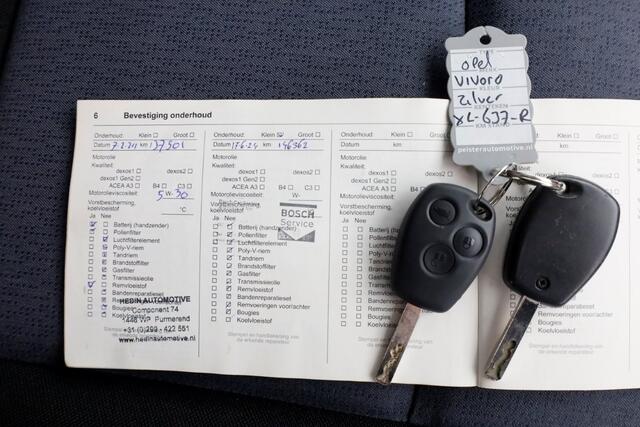 opel
VIVARO
KLEUR
Zilver
KENTEKEN
XL-677-R
KM STAND
peisterautomotive.nl
6 Bevestiging onderhoud
Onderhoud: Klein Groot
Datum 7-2-20 km 137501
Motorolie
Kwaliteit:
dexos1 dexos2
dexos1 Gen2
ACEA A3 B4 C3
Motorolieviscositeit: 5W-30
Vorstbescherming,
koelvloeistof °C
Ja Nee
Batterij (handzender)
Pollenfilter
Luchtfilterelement
Poly-V-riem
Tandriem
Brandstoffilter
Gasfilter
Transmissieolie
Remvloeistof
Bandenreparatieset
Bougies
Koelvloeistof
HEDIN AUTOMOTIVE
Component 74
1446 WP Purmerend
+31 (0)299 422 551
www.hedinautomotive.nl
Onderhoud: Klein Groot
Datum 17-6-24 km 146362
Motorolie
Kwaliteit:
dexos1 dexos2
dexos1 Gen2
ACEA A3 B4 C3
Motorolieviscositeit: W-
Vorstbescherming,
koelvloeistof
BOSCH
Service
Ja Nee
Batterij (handzender)
Pollenfilter
Luchtfilterelement
Poly-V-riem
Tandriem
Brandstoffilter
Gasfilter
Transmissieolie
Remvloeistof
Bandenreparatieset
Remvoeringen voor/achter
Bougies
Koelvloeistof
Stempel en handtekening van
de erkende reparateur
Onderhoud: Klein Groot
Datum km
Motorolie
Kwaliteit:
dexos1
dexos1 Gen2
ACEA A3
Motorolieviscositeit:
Vorstbescherming,
koelvloeistof
Ja Nee
Batterij
Pollenfilter
Poly-V-riem
Tandriem
Brandstoffilter
Gasfilter
Transmissieolie
Remvloeistof
Bandenreparatieset
Remvoeringen
Bougies
Koelvloeistof
Bandenreparatieset
Remvoeringen voor/achter
Bougies
Koelvloeistof
Stempel en handtekening van
de erkende reparateur